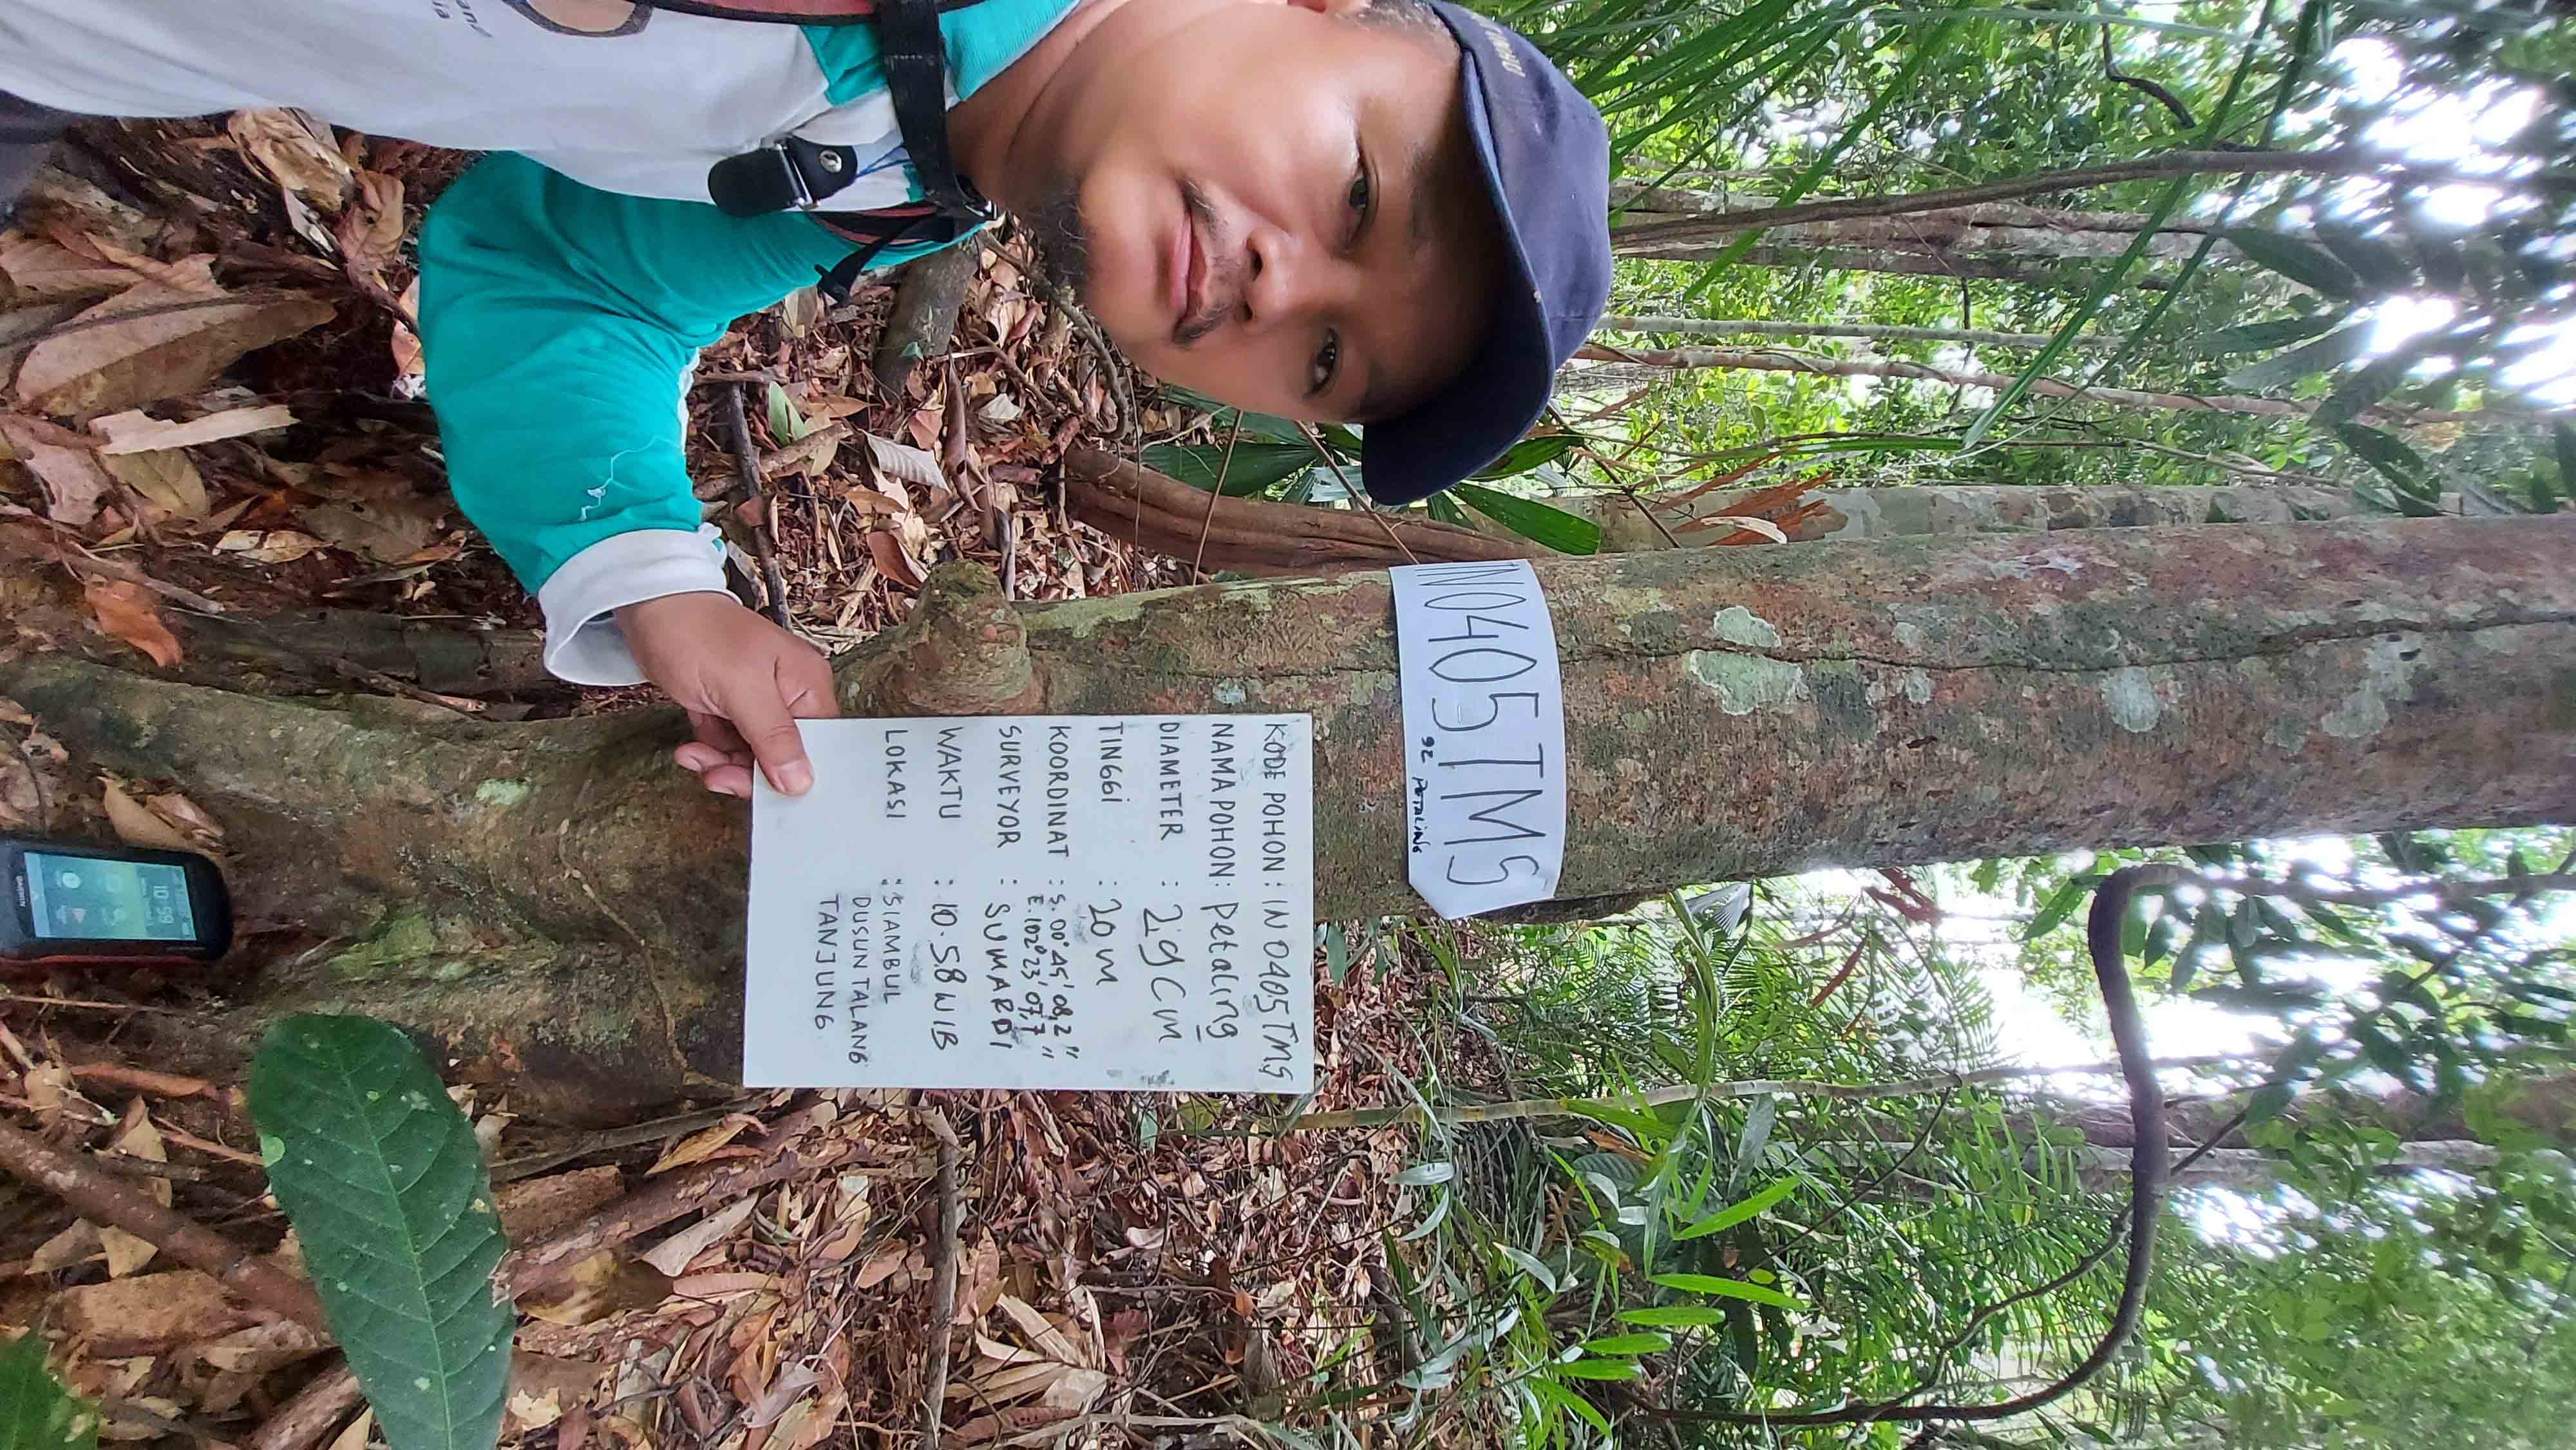 IN0405TMS
92 PETALING
KODE POHON : IN0405TMS
NAMA POHON : Petaling
DIAMETER : 29 Cm
TINGGI : 20 m
KOORDINAT : S. 00° 45' 08,2"
E. 102° 23' 07,7"
SURVEYOR : SUMARDI
WAKTU : 10.58 WIB
LOKASI : SIAMBUL
DUSUN TALANG
TANJUNG
GARMIN
10:59